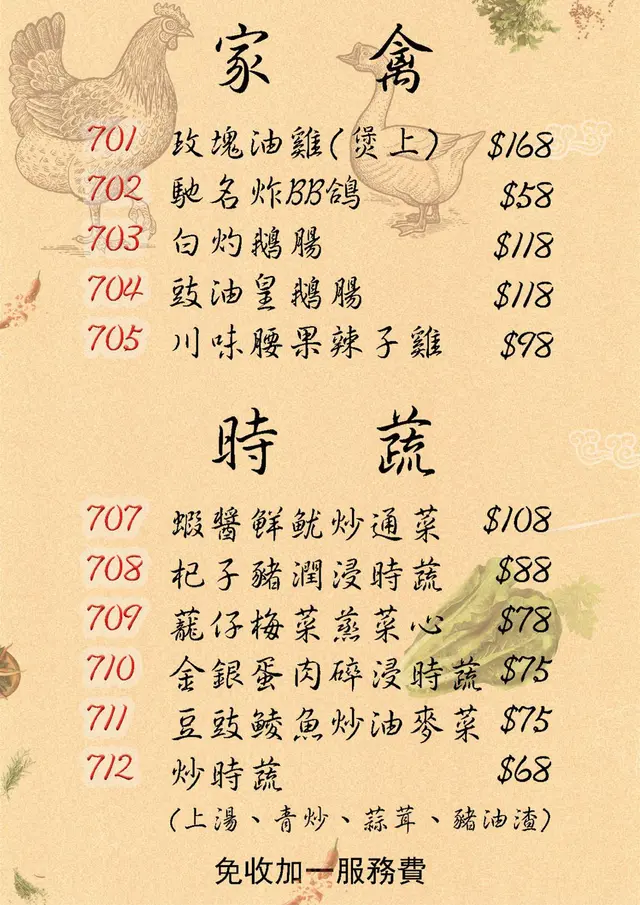 家 禽
701 玫瑰油雞(煲上) $168
702 馳名炸BB鴿 $58
703 白灼鵝腸 $118
704 豉油皇鵝腸 $118
705 川味腰果辣子雞 $98
時 蔬
707 蝦醬鮮魷炒通菜 $108
708 杞子豬潤浸時蔬 $88
709 蘢仔梅菜蒸菜心 $78
710 金銀蛋肉碎浸時蔬 $75
711 豆豉鯪魚炒油麥菜 $75
712 炒時蔬 $68
(上湯、青炒、蒜茸、豬油渣)
免收加一服務費